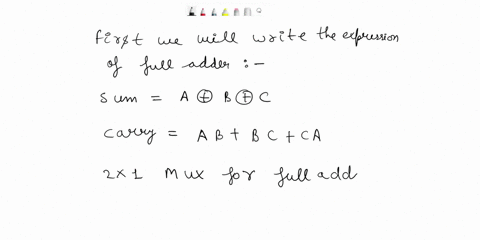 first we will write the expression
of full adder :-
sum = A ⊕ B ⊕ C
carry = AB + BC + CA
2×1 Mux for full add